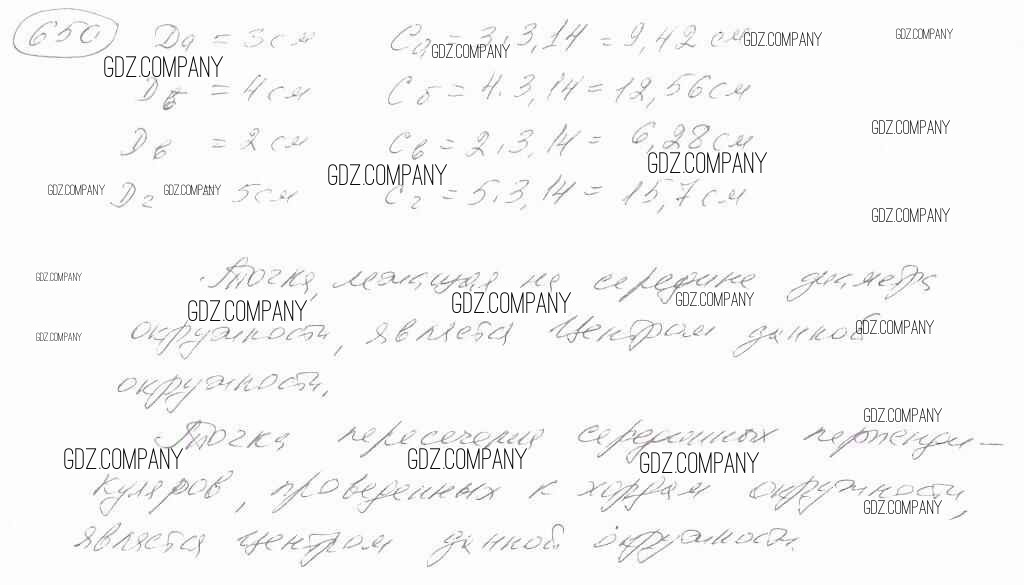 650 Dа = 3 см Cа = 3.3,14 = 9,42 см GDZ.COMPANY
GDZ.COMPANY GDZ.COMPANY GDZ.COMPANY
Dб = 4 см Cб = 4.3,14 = 12,56 см
GDZ.COMPANY
Dв = 2 см Cв = 2.3,14 = 6,28 см
GDZ.COMPANY GDZ.COMPANY
GDZ.COMPANY GDZ.COMPANY
Dг 5 см Cг = 5.3,14 = 15,7 см
GDZ.COMPANY
GDZ.COMPANY
Точка, лежащая на середине диаметра
GDZ.COMPANY GDZ.COMPANY GDZ.COMPANY
GDZ.COMPANY GDZ.COMPANY
окружности, является центром данной
окружности.
GDZ.COMPANY
Точка пересечения серединных перпенди-
GDZ.COMPANY GDZ.COMPANY GDZ.COMPANY
куляров, проведенных к хордам окружности,
GDZ.COMPANY
является центром данной окружности.